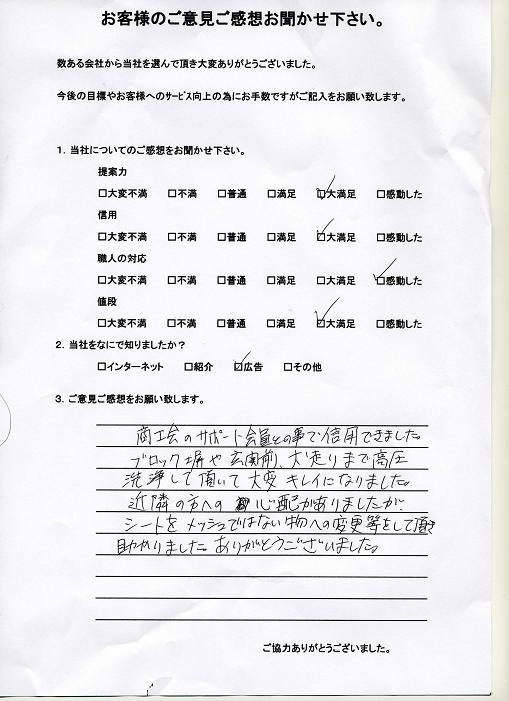 お客様のご意見ご感想お聞かせ下さい。
数ある会社から当社を選んで頂き大変ありがとうございました。
今後の目標やお客様へのサービス向上の為にお手数ですがご記入をお願い致します。
1. 当社についてのご感想をお聞かせ下さい。
提案力
□大変不満 □不満 □普通 □満足 ☑大満足 □感動した
信用
□大変不満 □不満 □普通 □満足 ☑大満足 □感動した
職人の対応
□大変不満 □不満 □普通 □満足 □大満足 ☑感動した
値段
□大変不満 □不満 □普通 □満足 ☑大満足 □感動した
2. 当社をなにで知りましたか？
□インターネット □紹介 ☑広告 □その他
3. ご意見ご感想をお願い致します。
商工会のサポート会員との事で信用できました。
ブロック塀や玄関前、犬走りまで高圧
洗浄して頂いて大変キレイになりました。
近隣の方への心配がありましたが
シートをメッシュではない物への変更等をして頂き
助かりました。ありがとうございました。
ご協力ありがとうございました。